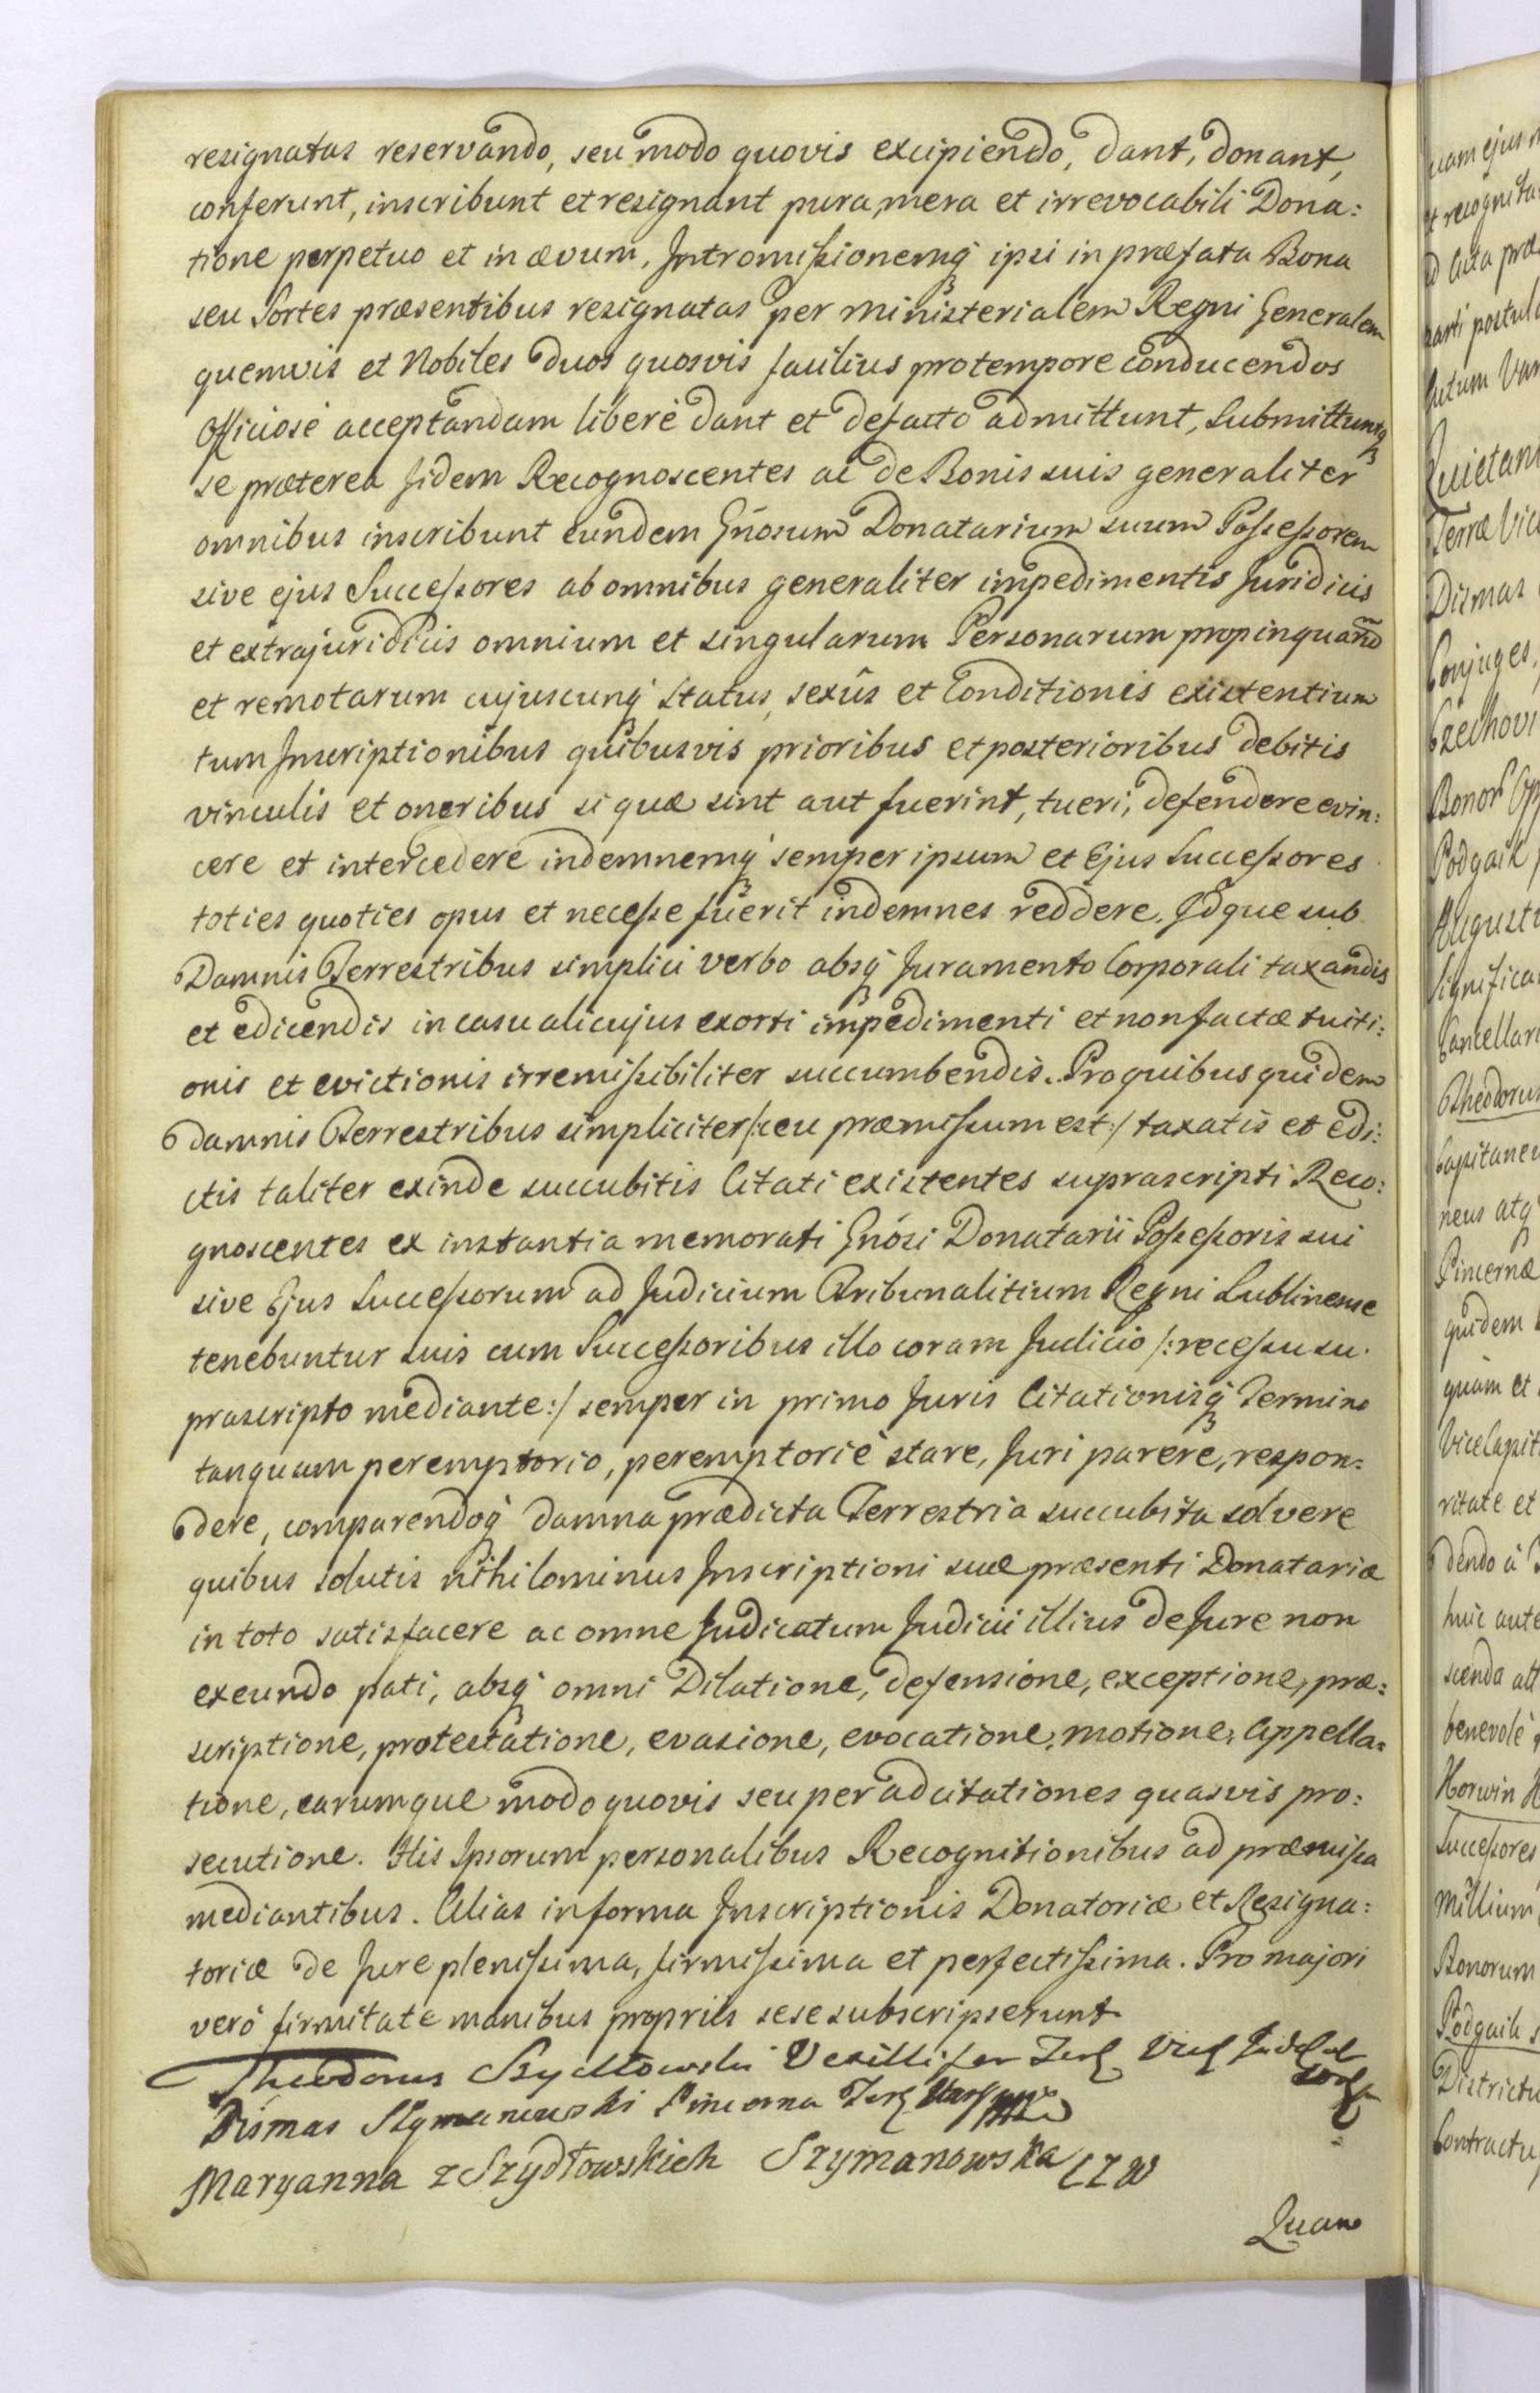 resignatas reservando, seu modo quovis excipiendo, dant, donant,
conferunt, inscribunt et resignant pura, mera et irrevocabili Dona:
tione perpetuo et in ævum, Intromissionemq́ ipsi in præfata Bona
seu Sortes præsentibus resignatas per Ministerialem Regni Generalem
quemvis et Nobiles duos quosvis facilius pro tempore conducendos
Officiosè acceptandam liberè dant et de facto admittunt, Submittuntq́
se præterea fidem Recognoscentes ac de Bonis suis generaliter
omnibus inscribunt eundem Gńosum Donatarium suum Possessorem
sive ejus Successores ab omnibus generaliter impedimentis Juridicis
et extrajuridicis omnium et singularum Personarum propinquarum
et remotarum cujuscunq́ Status, sexûs et Conditionis existentium
tum Inscriptionibus quibusvis prioribus et posterioribus debitis
vinculis et oneribus si quæ sint aut fuerint, tueri, defendere evin:
cere et intercedere indemnemq́ semper ipsum et Ejus Successores
toties quoties opus et necesse fuerit indemnes reddere. Idque sub
Damnis Terrestribus simplici verbo absq́ Juramento Corporali taxandis
et edicendis in casu alicujus exorti impedimenti et non factæ tuiti:
onis et evictionis irremissibiliter succumbendis. Pro quibus quidem
damnis Terrestribus simpliciter /:ceu præmissum est:/ taxatis et edi:
ctis taliter exinde succubitis Citati existentes suprascripti Reco:
gnoscentes ex instantia memorati Gńosi Donatarii Possessoris sui
sive Ejus Successorum ad Judicium Tribunalitium Regni Lublinense
tenebuntur suis cum Successoribus illo coram Judicio /:recessu su:
prascripto mediante:/ semper in primo Juris Citationisq́ Termino
tanquam peremptorio, peremptoriè stare, Juri parere, respon:
dere, comparendoq́ damna prædicta Terrestria succubita solvere
quibus solutis nihilominus Inscriptioni suæ præsenti Donatariæ
in toto satisfacere ac omne Judicatum Judicii illius de Jure non
exeundo pati, absq́ omni Dilatione, defensione, exceptione, præ:
scriptione, protestatione, evasione, evocatione, motione, Appella:
tione, earumque modo quovis seu per adcitationes quasvis pro:
secutione. His Ipsorum personalibus Recognitionibus ad præmissa
mediantibus. Alias in forma Inscriptionis Donatoriæ et Resigna:
toriæ de Jure plenissima, firmissima et perfectissima. Pro majori
verò firmitate manibus propriis sese subscripserunt
Theodorus Szydłowski Vexillifer
Dismas Szymanowski Pincerna
Maryanna z Szydłowskich Szymanowska CZW
Quam